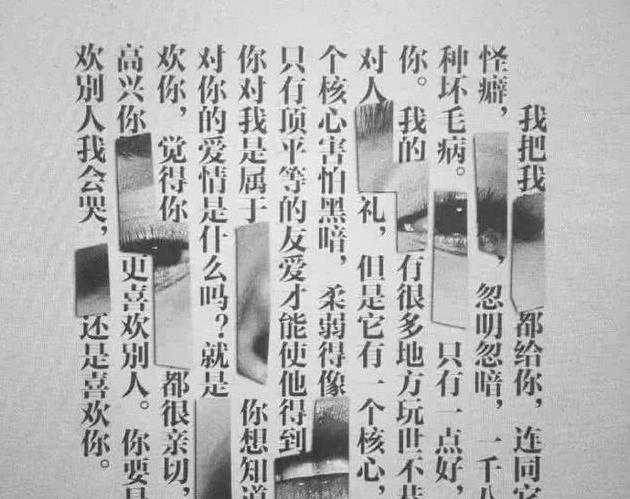 我把我都给你，连同它
怪癖，，忽明忽暗，一千八
种坏毛病。只有一点好，
你。我的有很多地方玩世不恭
对人礼，但是它有一个核心，
个核心害怕黑暗，柔弱得像
只有顶平等的友爱才能使他得到
你对我是属于你想知道
对你的爱情是什么吗？就是
欢你，觉得你都很亲切，
高兴你更喜欢别人。你要是
欢别人我会哭，还是喜欢你。